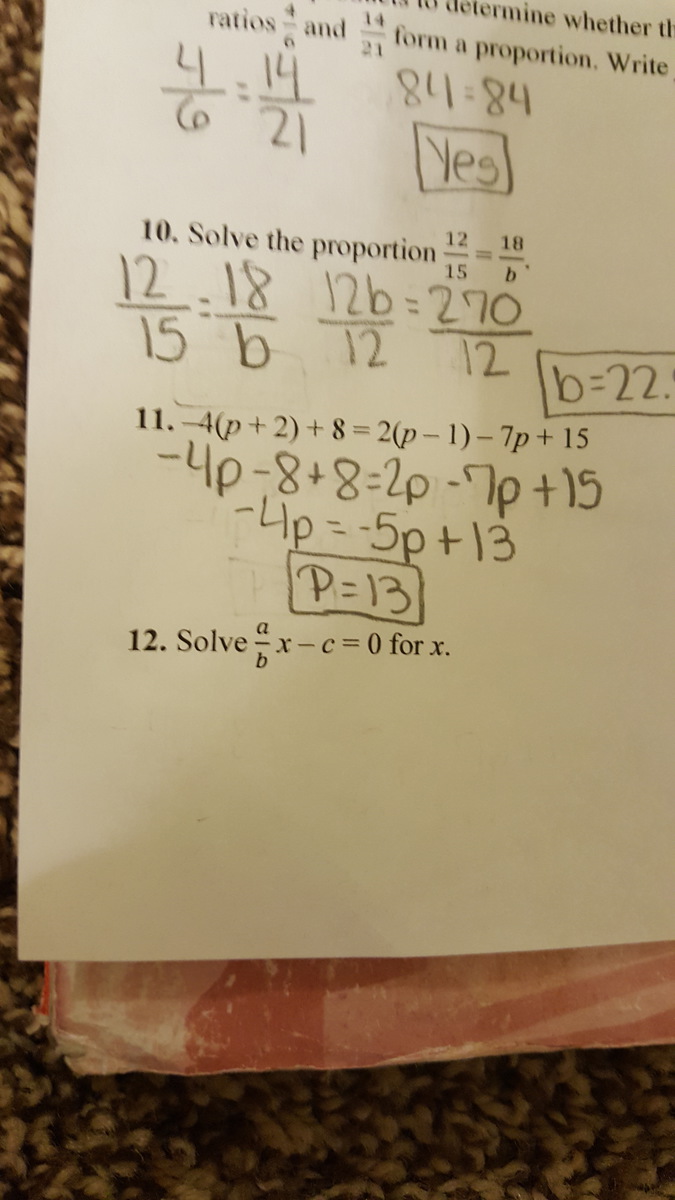 to determine whether
ratios 4/6 and 14/21 form a proportion. Write
4/6 = 14/21 84 = 84
Yes
10. Solve the proportion 12/15 = 18/b.
12/15 = 18/b 12b/12 = 270/12
b=22.
11. –4(p + 2) + 8 = 2(p – 1) – 7p + 15
-4p -8+8=2p -7p +15
-4p = -5p +13
P=13
12. Solve a/b x – c = 0 for x.